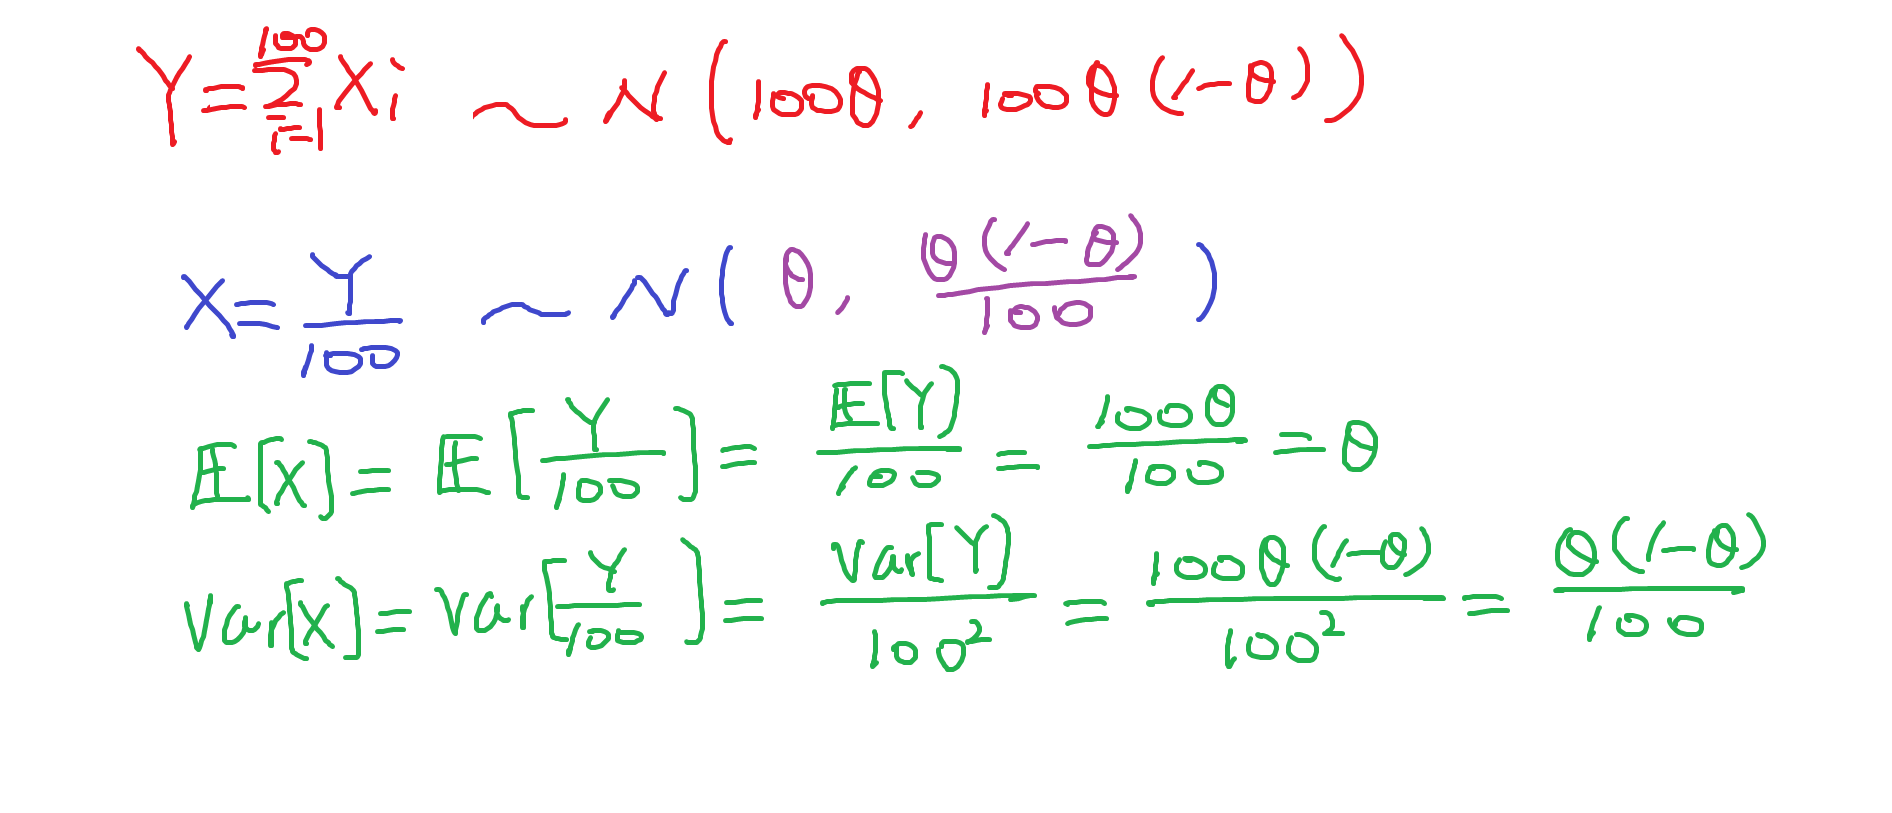 Y = \sum_{i=1}^{100} X_i ~ N(100θ, 100θ(1-θ))
X = \frac{Y}{100} ~ N(θ, \frac{θ(1-θ)}{100})
𝔼[X] = 𝔼[\frac{Y}{100}] = \frac{𝔼[Y]}{100} = \frac{100θ}{100} = θ
Var[X] = Var[\frac{Y}{100}] = \frac{Var[Y]}{100^2} = \frac{100θ(1-θ)}{100^2} = \frac{θ(1-θ)}{100}